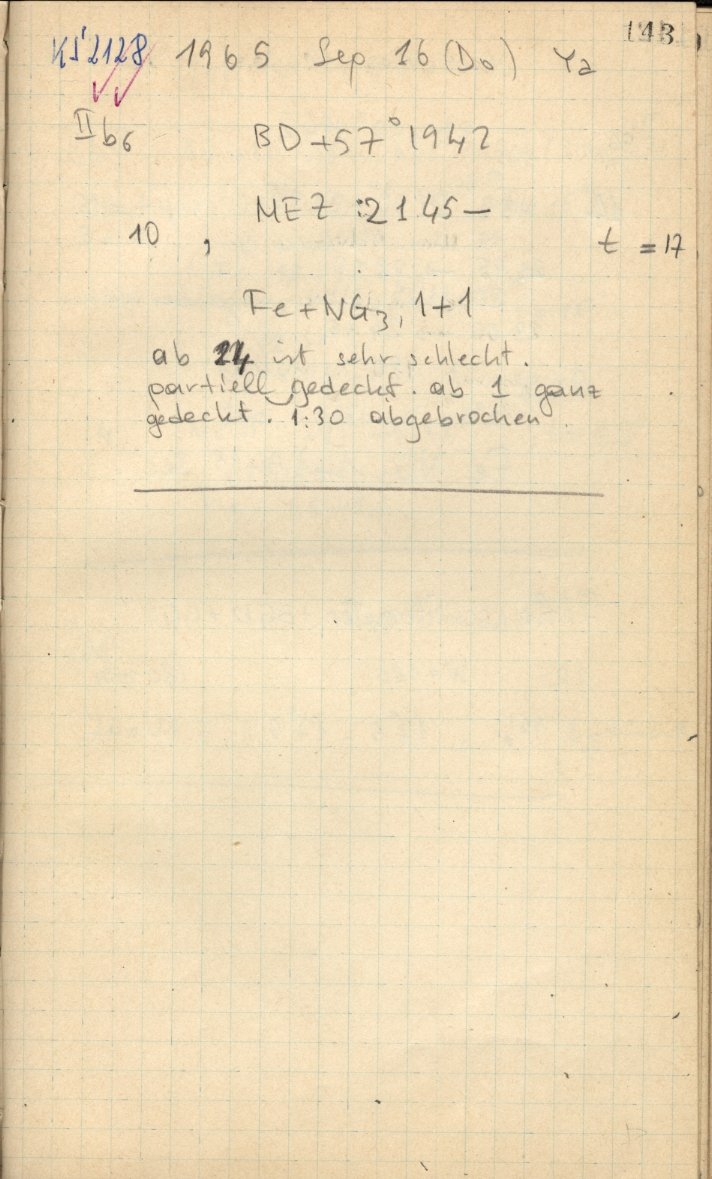 143
KŠ 2128 1965 Sep 16 (Do) Ya
II b6 BD+57° 1942
MEZ : 21 45 —
10 , t = 17
Fe + NG3, 1+1
ab 24 ist sehr schlecht.
partiell gedeckt. ab 1 ganz
gedeckt. 1:30 abgebrochen